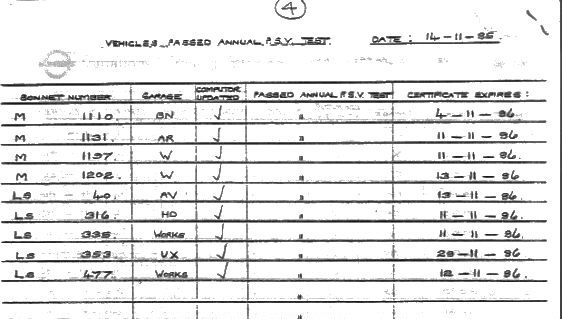 4
VEHICLES PASSED ANNUAL P.S.V. TEST. DATE: 14-11-85
BONNET NUMBER GARAGE COMPUTOR UPDATED PASSED ANNUAL P.S.V. TEST CERTIFICATE EXPIRES:
M 1110. BN ✓ " 4-11-86
M 1131. AR ✓ " 11-11-86
M 1197. W ✓ " 11-11-86.
M 1202. W ✓ " 13-11-86
LS 40. AV ✓ " 13-11-86.
LS 316. HD ✓ " 11-11-86.
LS 335. WORKS ✓ " 11-11-86.
LS 353 UX ✓ " 29-11-86
LS 477. WORKS ✓ " 12-11-86.
"
"